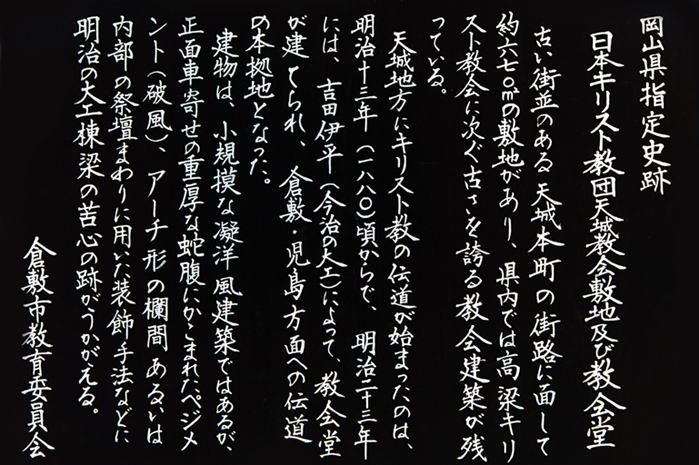 岡山県指定史跡
日本キリスト教団天城教会敷地及び教会堂
古い街並のある天城本町の街路に面して
約六七〇㎡の敷地があり、県内では高梁キリ
スト教会に次ぐ古さを誇る教会建築が残
っている。
天城地方にキリスト教の伝道が始まったのは、
明治十三年(一八八〇)頃からで、明治二十三年
には、吉田伊平(今治の大工)によって、教会堂
が建てられ、倉敷・児島方面への伝道
の本拠地となった。
建物は、小規模な凝洋風建築ではあるが、
正面車寄せの重厚な蛇腹にかこまれたペジメ
ント(破風)、アーチ形の欄間あるいは
内部の祭壇まわりに用いた装飾手法などに
明治の大工棟梁の苦心の跡がうかがえる。
倉敷市教育委員会